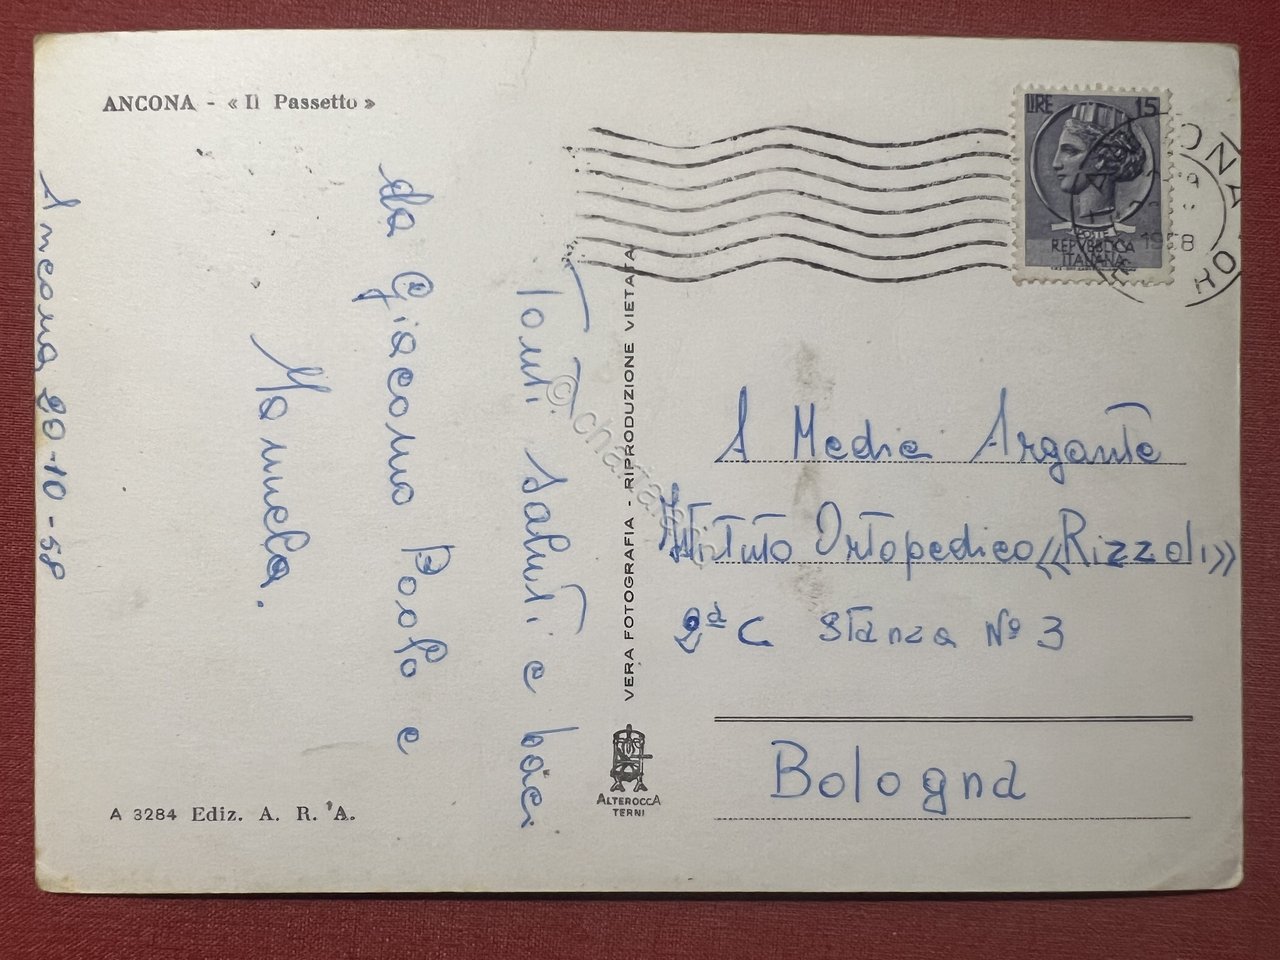 ANCONA - « Il Passetto »
Ancona 20-10-58
Tanti saluti e baci
da Giacomo Paolo e
Manuela.
A 3284 Ediz. A. R. A.
VERA FOTOGRAFIA - RIPRODUZIONE VIETATA
ALTEROCCA
TERNI
LIRE 15
POSTE
REPVBBLICA
ITALIANA
1958
A Medie Argante
Istituto Ortopedico «Rizzoli»
2ª C Stanza Nº 3
Bologna
© chartaland